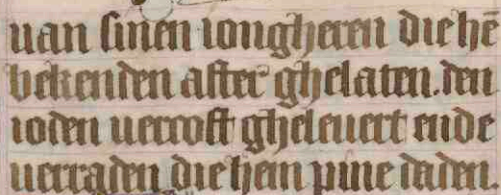 uan sinen iongheren die hē
bekenden after ghelaten. den
ioden uercoft gheleuert ende
uerraden die hem pine daden